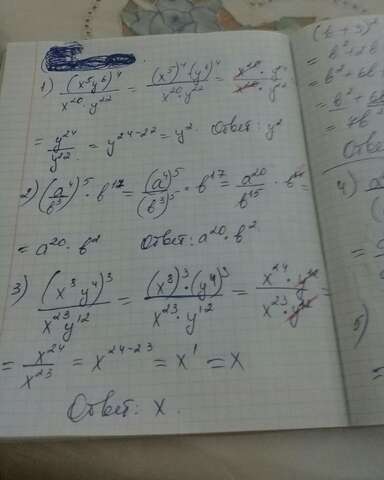 1) (x⁵y⁶)⁴ / x²⁰·y²² = (x⁵)⁴·(y⁶)⁴ / x²⁰·y²² = x²⁰·y²⁴ / x²⁰·y²² =
= y²⁴ / y²² = y²⁴⁻²² = y². Ответ: y²
2) (a⁴ / b³)⁵ · b¹⁷ = (a⁴)⁵ / (b³)⁵ · b¹⁷ = a²⁰ / b¹⁵ · b¹⁷ =
= a²⁰·b² Ответ: a²⁰·b².
3) (x⁸y⁴)³ / x²³y¹² = (x⁸)³·(y⁴)³ / x²³·y¹² = x²⁴·y¹² / x²³·y¹² =
= x²⁴ / x²³ = x²⁴⁻²³ = x¹ = x
Ответ: x.
4)
5)